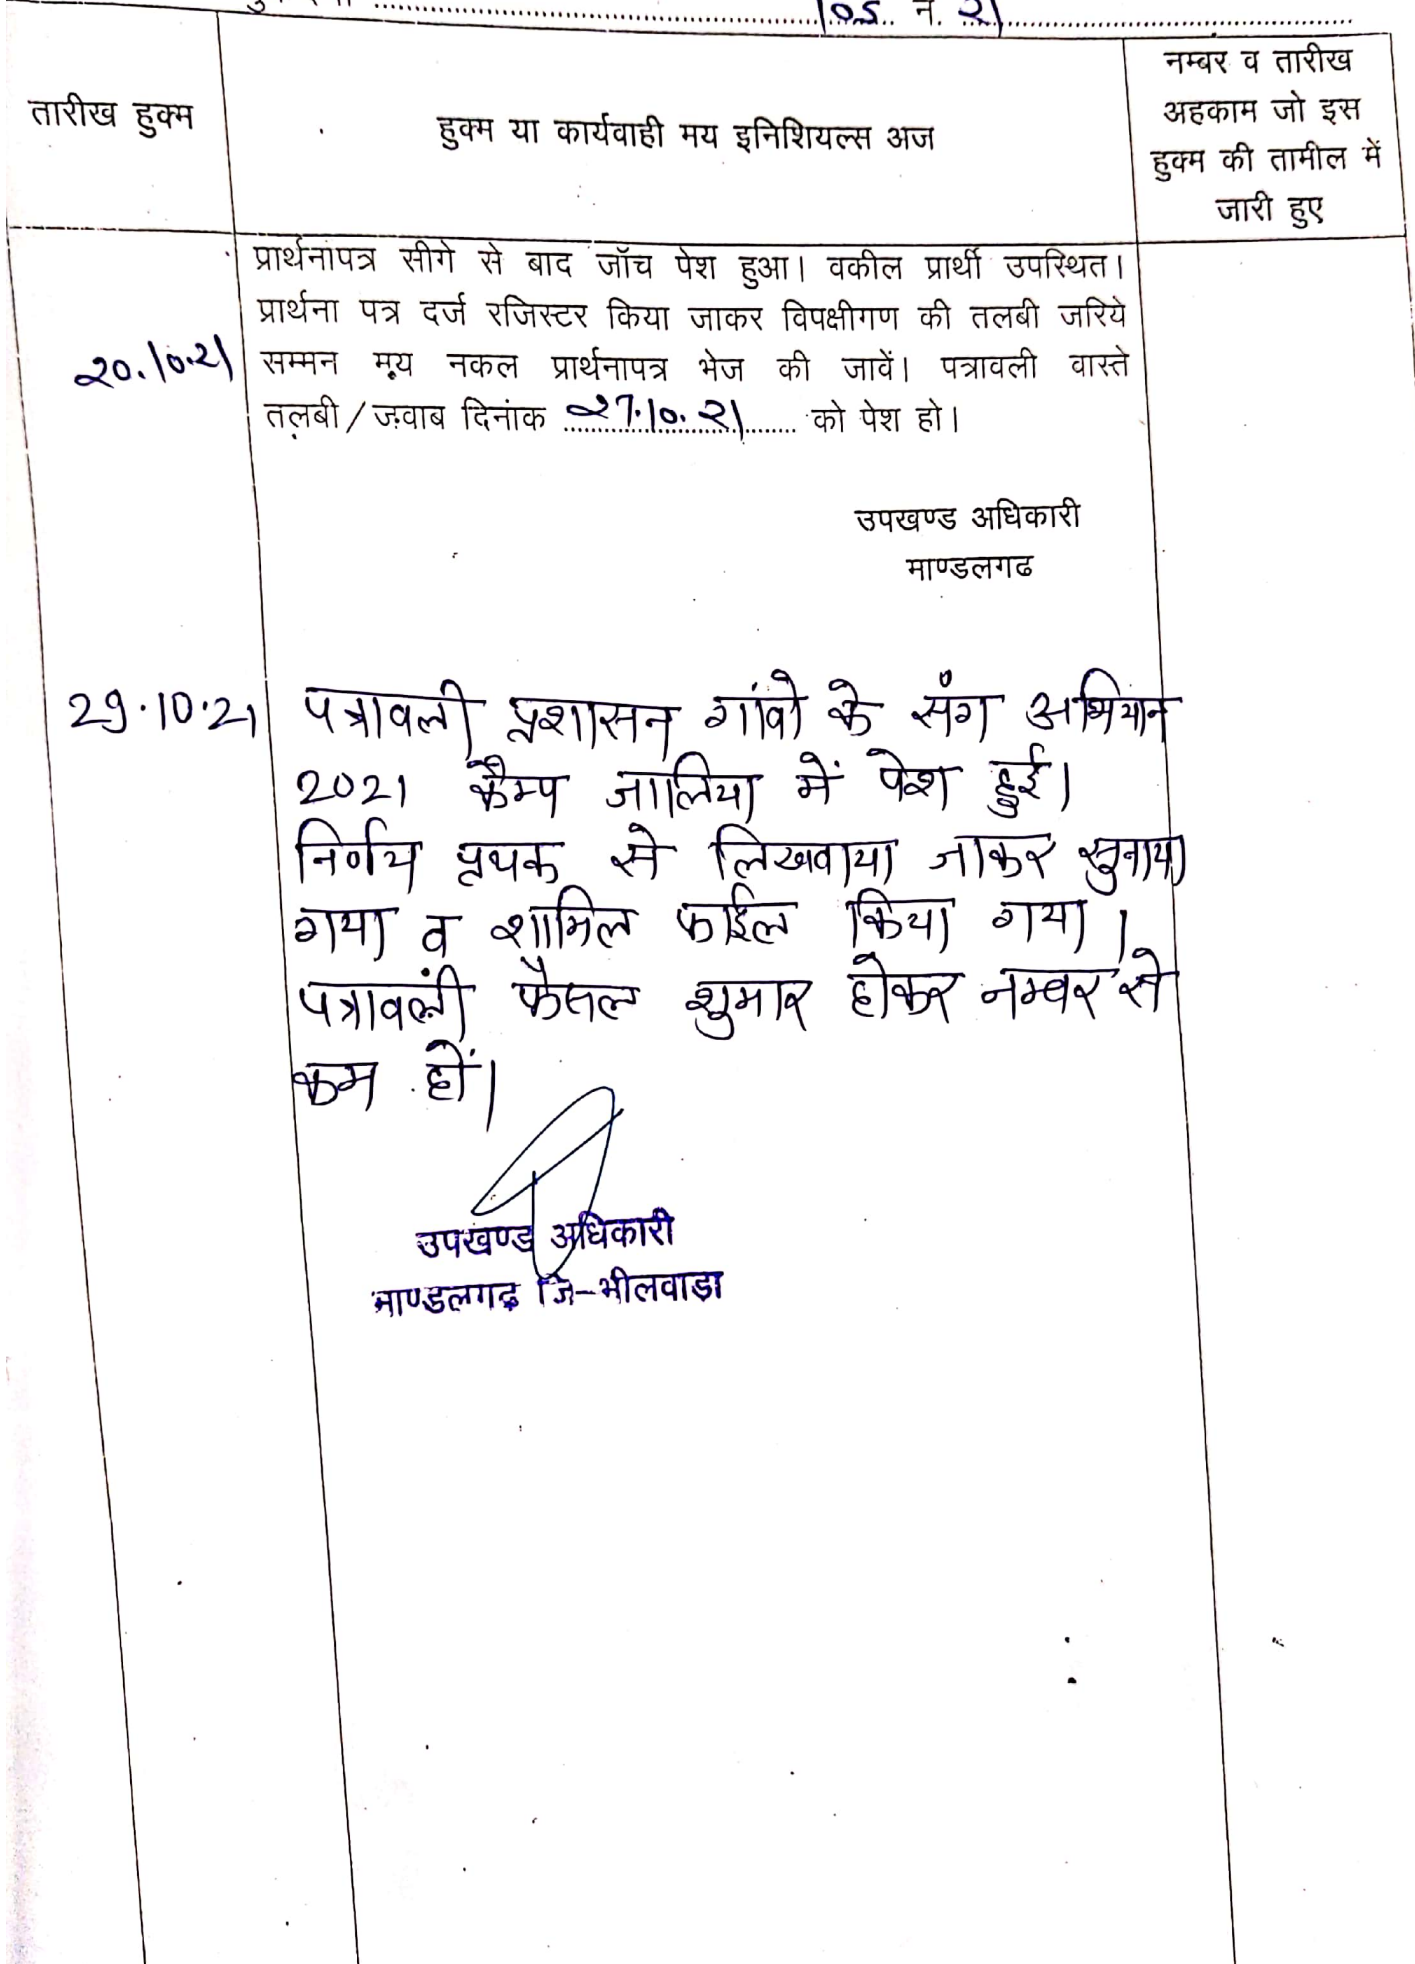 105 न. 21
तारीख हुक्म
हुक्म या कार्यवाही मय इनिशियल्स अज
नम्बर व तारीख
अहकाम जो इस
हुक्म की तामील में
जारी हुए
20.10.21
प्रार्थनापत्र सीगे से बाद जॉच पेश हुआ। वकील प्रार्थी उपस्थित।
प्रार्थना पत्र दर्ज रजिस्टर किया जाकर विपक्षीगण की तलबी जरिये
सम्मन मय नकल प्रार्थनापत्र भेज की जावें। पत्रावली वास्ते
तलबी/जवाब दिनांक 27.10.21 को पेश हो।
उपखण्ड अधिकारी
माण्डलगढ
29.10.21
पत्रावली प्रशासन गांवो के संग अभियान
2021 कैम्प जालिया में पेश हुई।
निर्णय पृथक से लिखवाया जाकर सुनाया
गया व शामिल फाईल किया गया।
पत्रावली फैसल शुमार होकर नम्बर से
कम हों।
उपखण्ड अधिकारी
माण्डलगढ़ जि-भीलवाडा